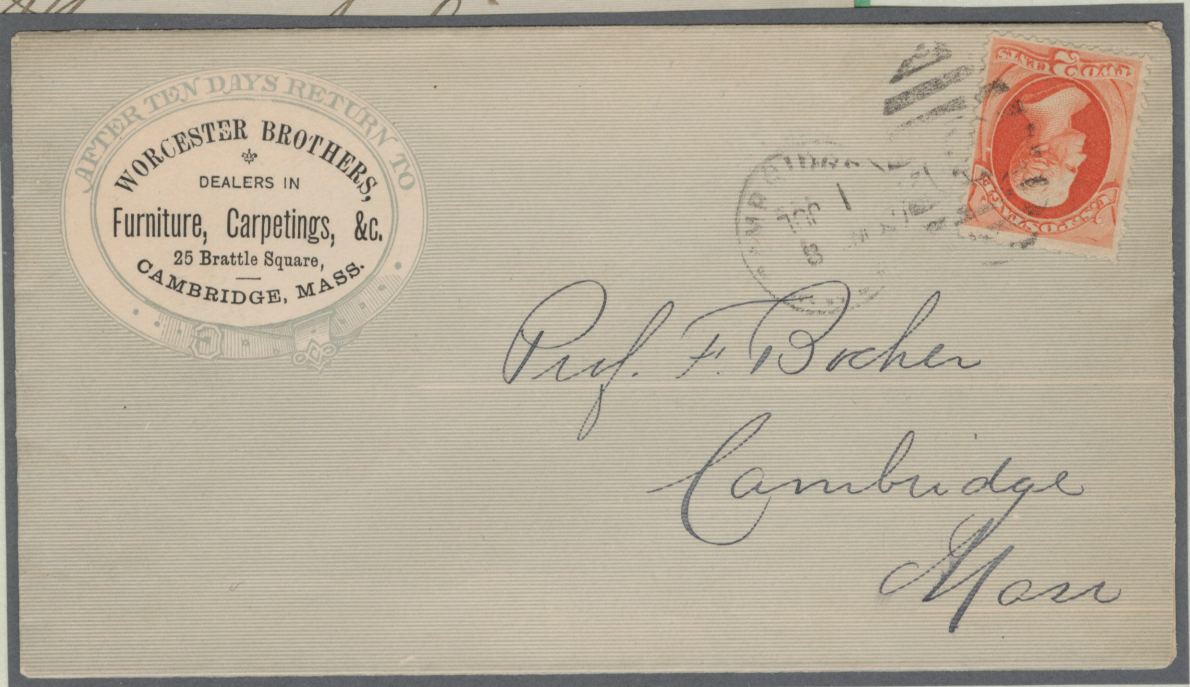 AFTER TEN DAYS RETURN TO
WORCESTER BROTHERS,
DEALERS IN
Furniture, Carpetings, &c.
25 Brattle Square,
CAMBRIDGE, MASS.
Prof. F. Bocher
Cambridge
Mass